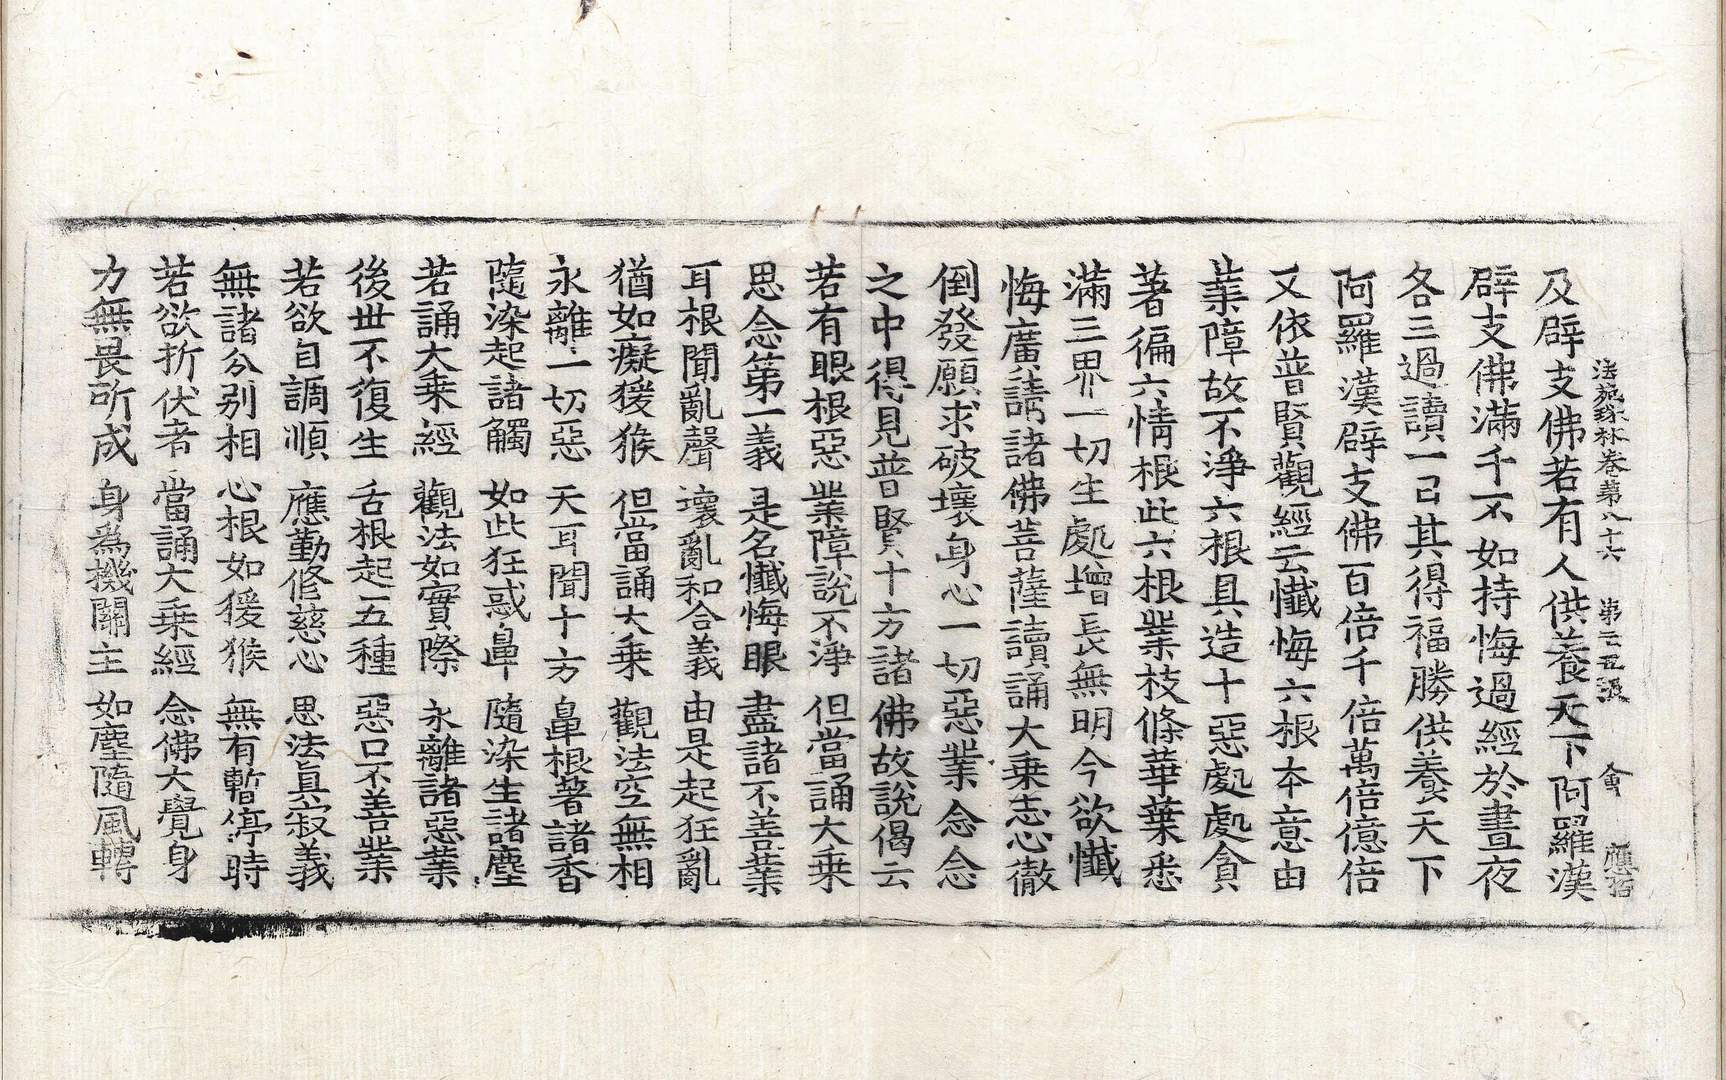 法苑珠林卷第八十六 第二五張 會 應裕
及辟支佛若有人供養天下阿羅漢
辟支佛滿千不如持悔過經於晝夜
各三過讀一已其得福勝供養天下
阿羅漢辟支佛百倍千倍萬倍億倍
又依普賢觀經云懺悔六根本意由
業障故不淨六根具造十惡處處貪
著徧六情根此六根業枝條華葉悉
滿三界一切生處增長無明今欲懺
悔廣請諸佛菩薩讀誦大乘志心徹
倒發願求破壞身心一切惡業念念
之中得見普賢十方諸佛故說偈云
若有眼根惡 業障說不淨 但當誦大乘
思念第一義 是名懺悔眼 盡諸不善業
耳根聞亂聲 壞亂和合義 由是起狂亂
猶如癡猨猴 但當誦大乘 觀法空無相
永離一切惡 天耳聞十方 鼻根著諸香
隨染起諸觸 如此狂惑鼻 隨染生諸塵
若誦大乘經 觀法如實際 永離諸惡業
後世不復生 舌根起五種 惡口不善業
若欲自調順 應勤修慈心 思法真寂義
無諸分別相 心根如猨猴 無有暫停時
若欲折伏者 當誦大乘經 念佛大覺身
力無畏所成 身為機關主 如塵隨風轉